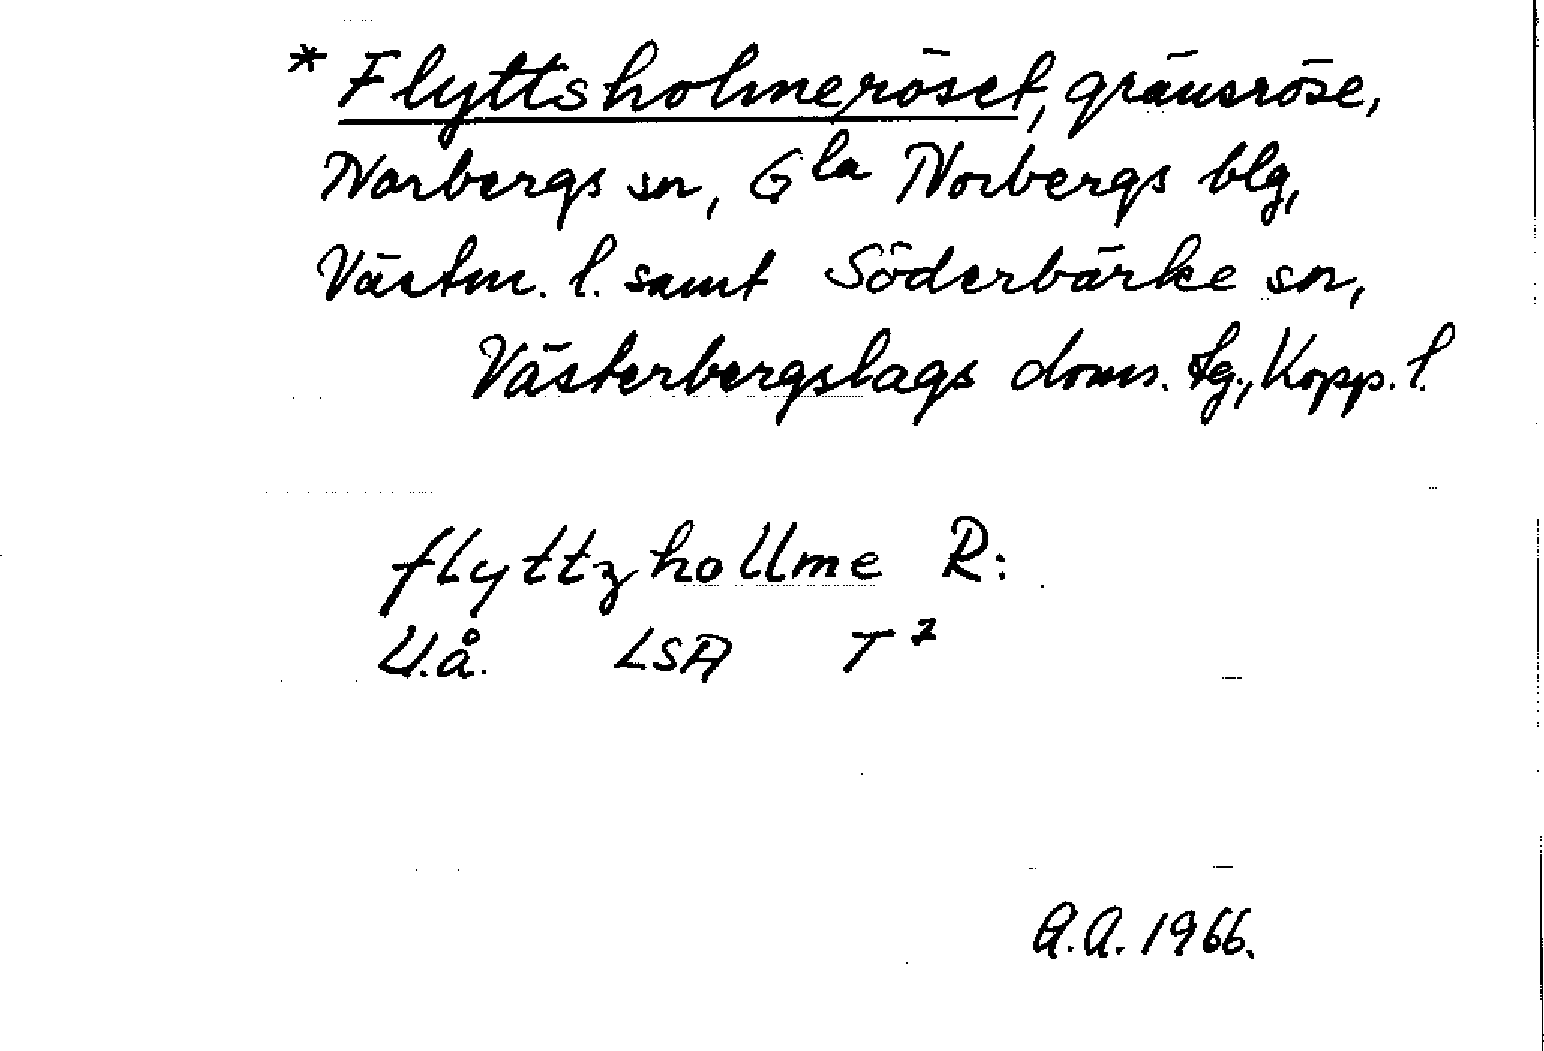 * Flyttsholmeröset, gränsröse,
Norbergs sn, Gla Norbergs blg,
Västm. l. samt Söderbärke sn,
Västerbergslags doms. tg., Kopp. l.
flyttzhollme R:
U.å. LSA T 7
A.A. 1966.